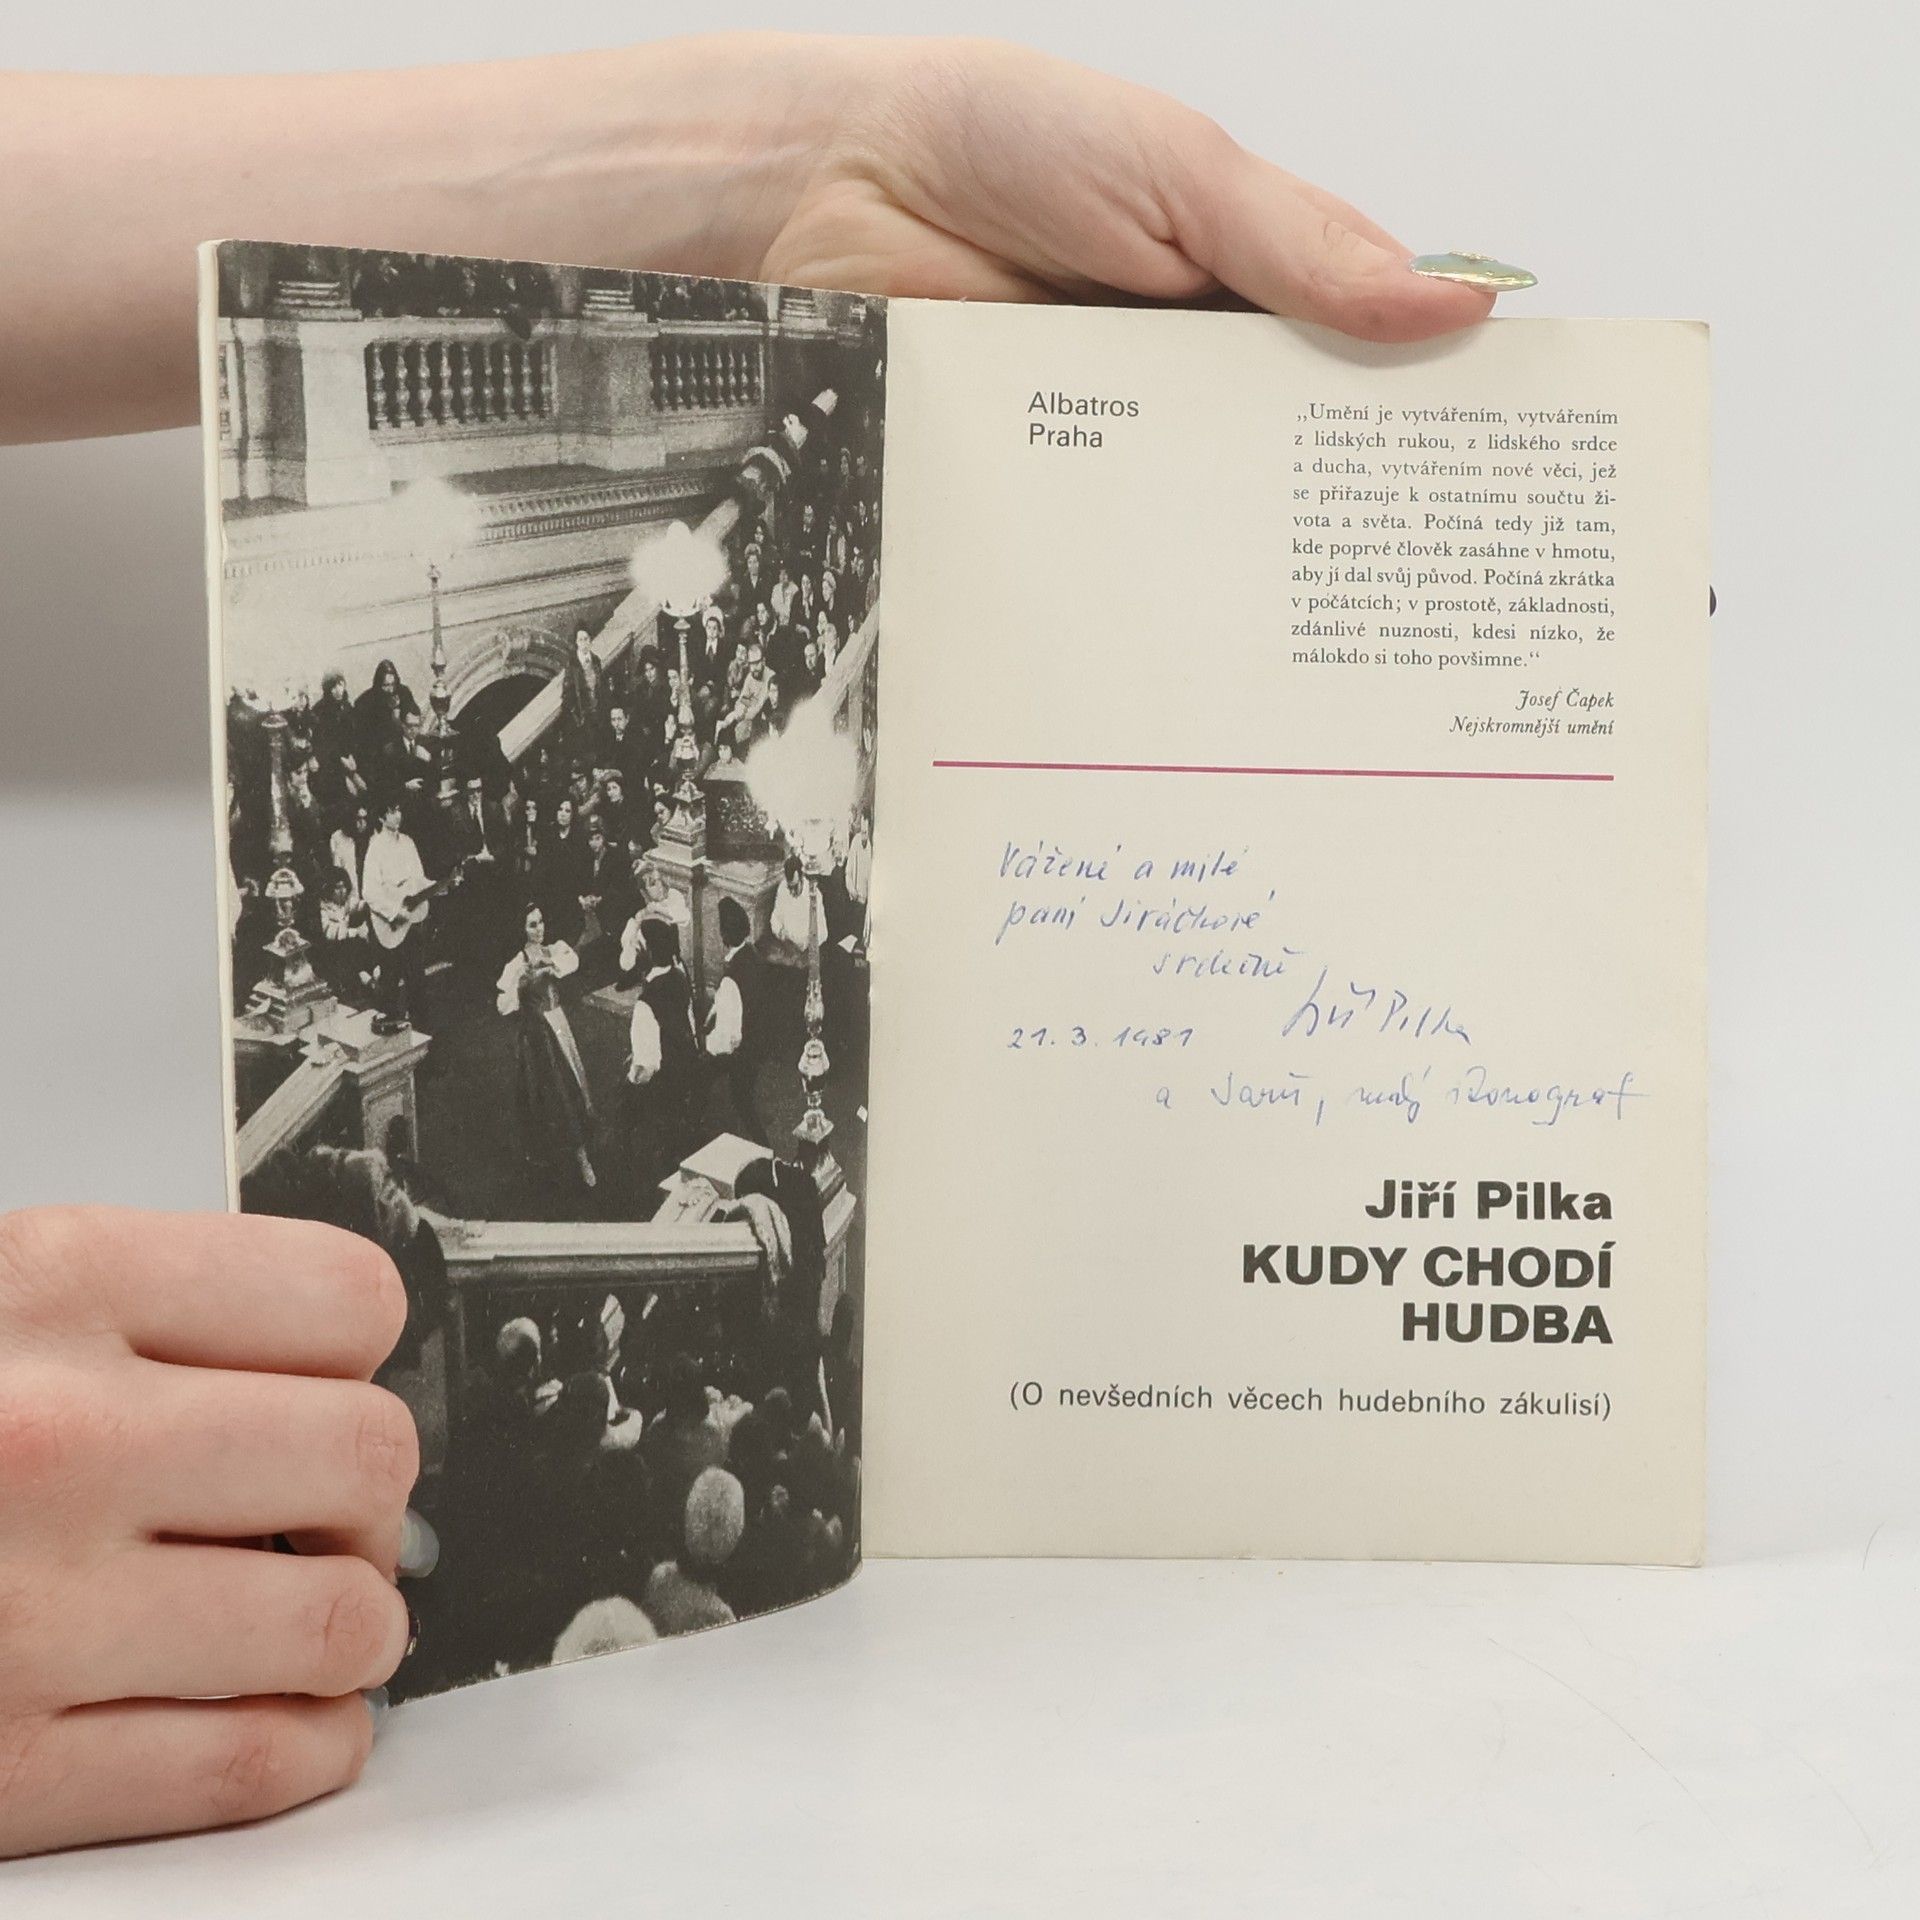 Albatros
Praha
,,Umění je vytvářením, vytvářením
z lidských rukou, z lidského srdce
a ducha, vytvářením nové věci, jež
se přiřazuje k ostatnímu součtu ži-
vota a světa. Počíná tedy již tam,
kde poprvé člověk zasáhne v hmotu,
aby jí dal svůj původ. Počíná zkrátka
v počátcích; v prostotě, základnosti,
zdánlivé nuznosti, kdesi nízko, že
málokdo si toho povšimne.“
Josef Čapek
Nejskromnější umění
Vážené a milé
paní Jiráčkové
srdečně
Jiří Pilka
21. 3. 1981
a
Jiří Pilka
KUDY CHODÍ
HUDBA
(O nevšedních věcech hudebního zákulisí)